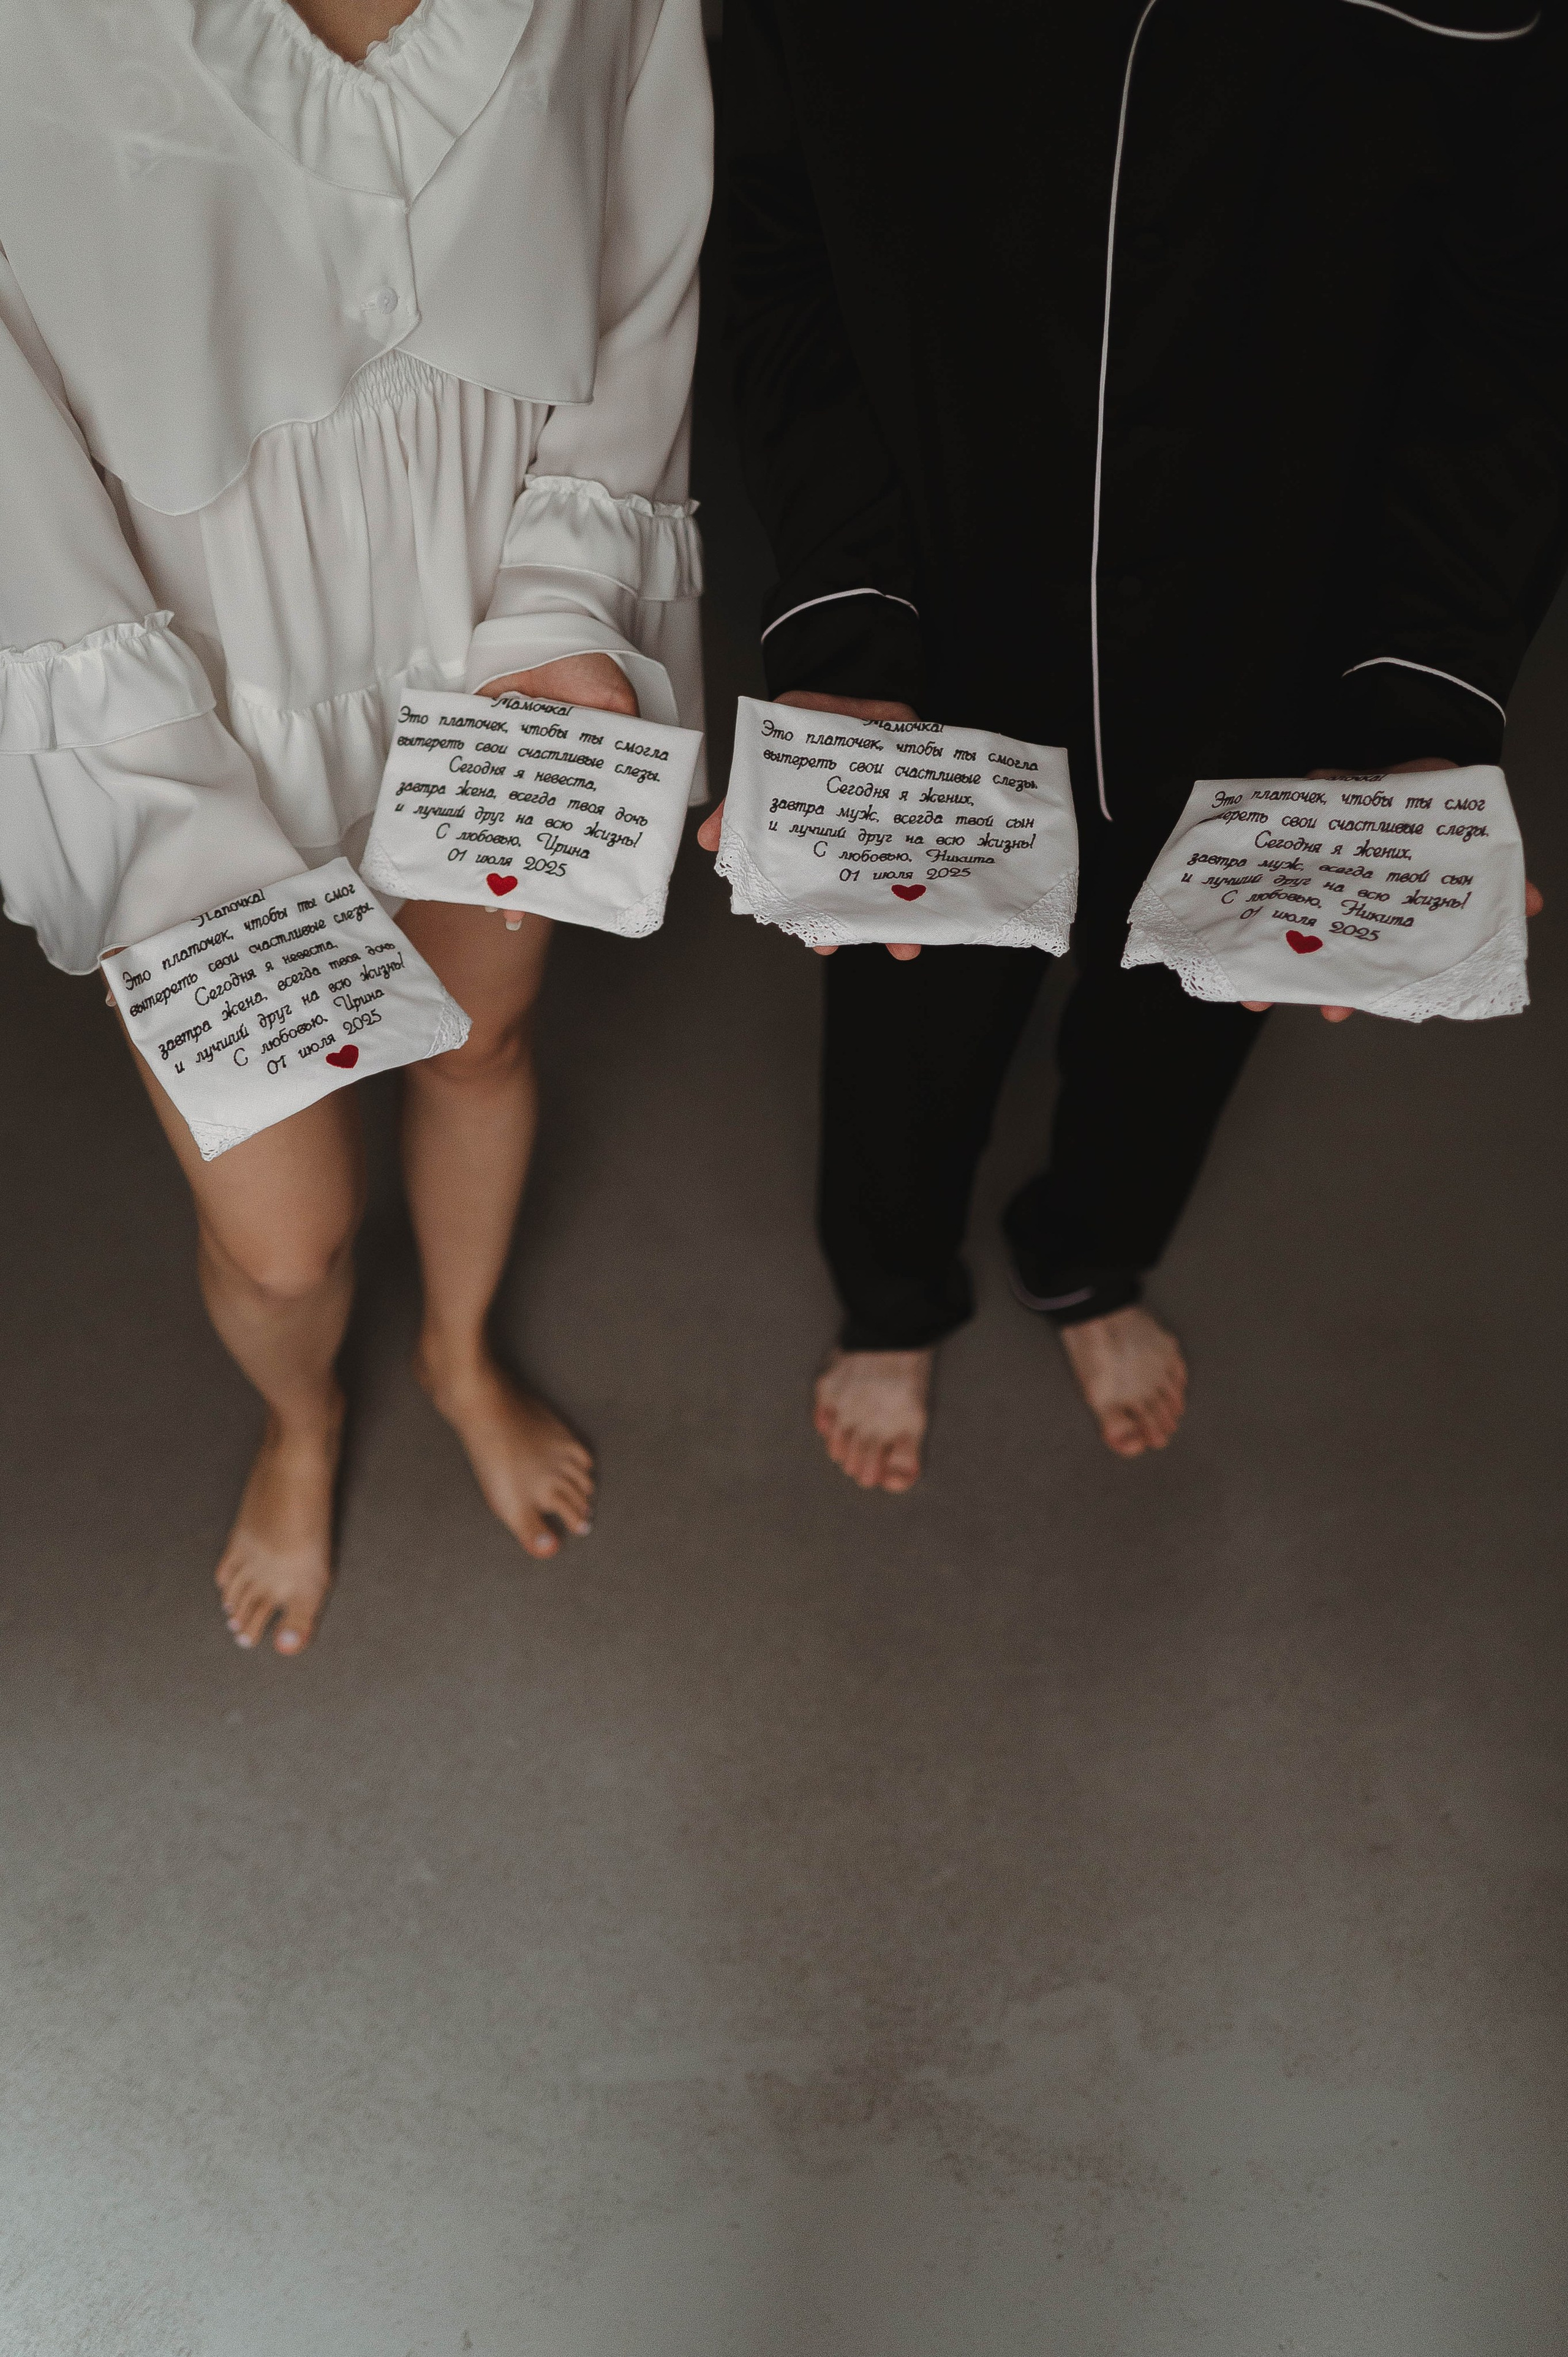 Папочка!
Это платочек, чтобы ты смог
вытереть свои счастливые слезы.
Сегодня я невеста,
завтра жена, всегда твоя дочь
и лучший друг на всю жизнь!
С любовью, Ирина
01 июля 2025
Мамочка!
Это платочек, чтобы ты смогла
вытереть свои счастливые слезы.
Сегодня я невеста,
завтра жена, всегда твоя дочь
и лучший друг на всю жизнь!
С любовью, Ирина
01 июля 2025
Мамочка!
Это платочек, чтобы ты смогла
вытереть свои счастливые слезы.
Сегодня я жених,
завтра муж, всегда твой сын
и лучший друг на всю жизнь!
С любовью, Никита
01 июля 2025
Это платочек, чтобы ты смог
свои счастливые слезы.
Сегодня я жених,
завтра муж, всегда твой сын
и лучший друг на всю жизнь!
С любовью, Никита
01 июля 2025